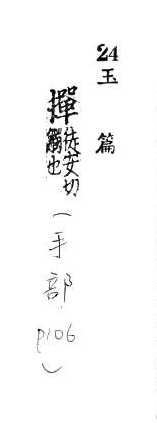 24 玉篇
撣徒安切觸也(手部 p106)